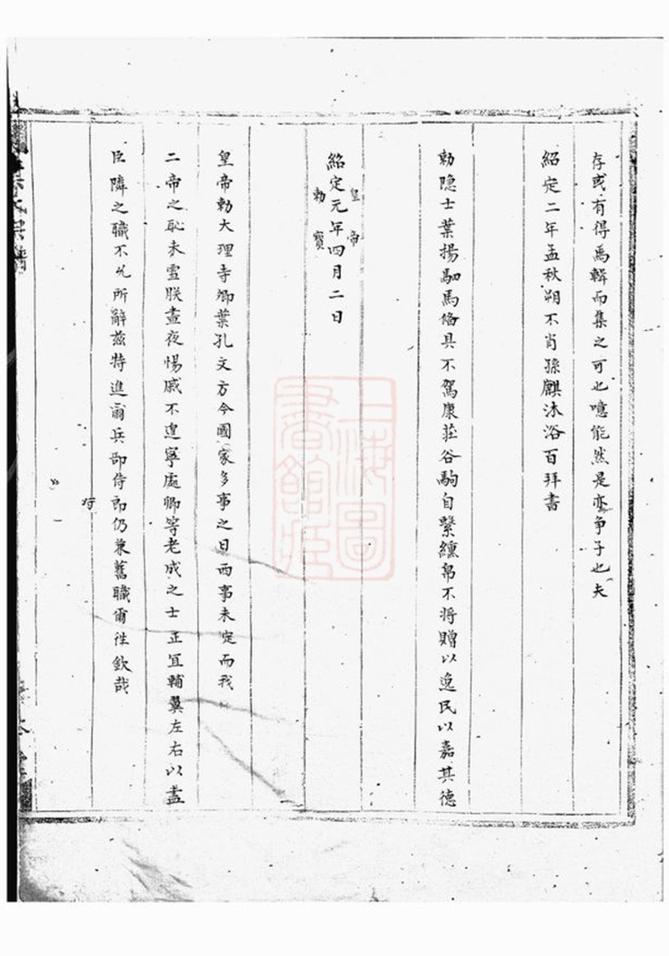 存或有得焉輯而集之可也噫能然是亦争子也夫
紹定二年孟秋朔不肖孫麒沐浴百拜書
勅隐士葉揚駟馬俻具不駕康莊谷駒自縶纁帛不將贈以逸民以嘉其德
皇帝
紹定元年四月二日
勅寳
皇帝勅大理寺卿葉孔文方今國家多事之日西事未定而我
二帝之恥未雪朕晝夜惕戚不遑寧處卿等老成之士正宜輔翼左右以盡
臣隣之職不允所辭兹特進爾兵部侍郎仍兼舊職爾往欽哉
上海圖書館藏